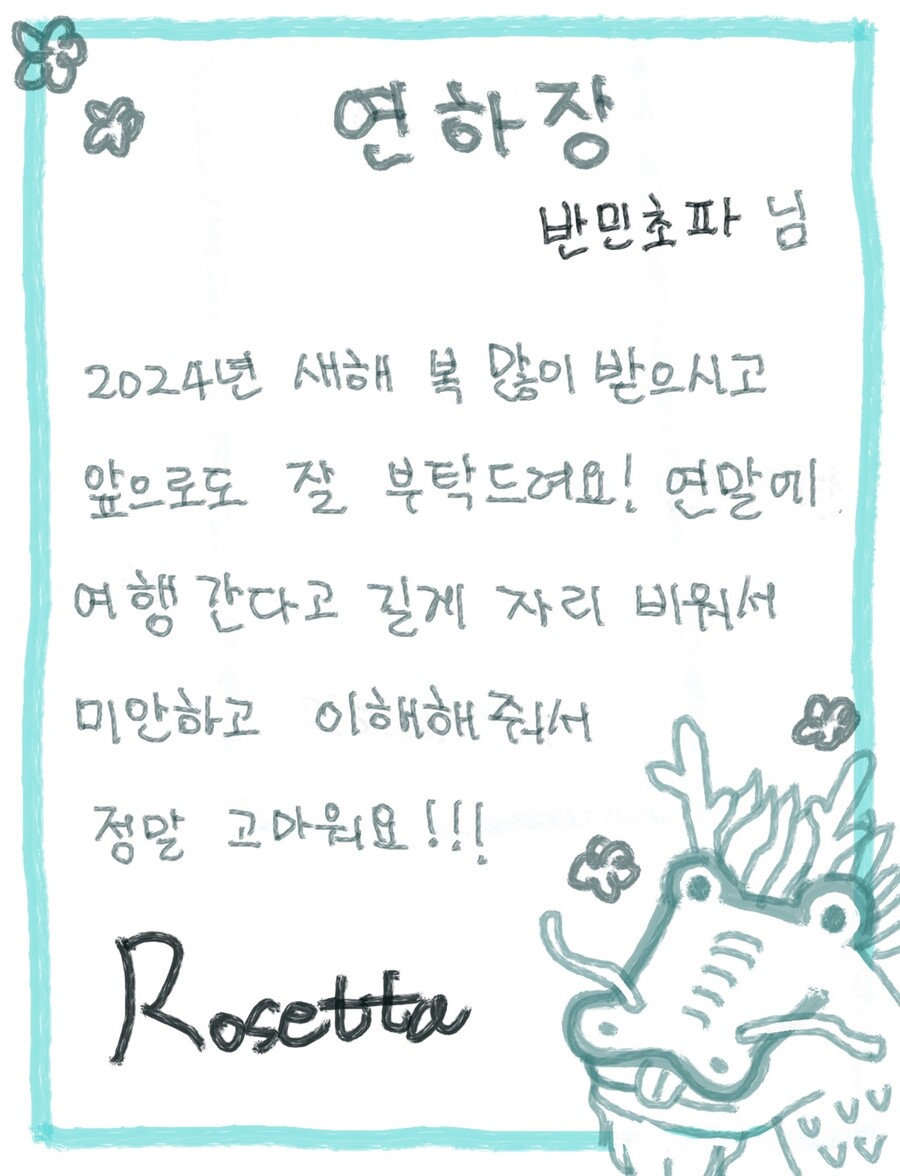 연하장
반민초파 님
2024년 새해 복 많이 받으시고
앞으로도 잘 부탁드려요! 연말에
여행 간다고 길게 자리 비워서
미안하고 이해해줘서
정말 고마워요!!!
Rosetta